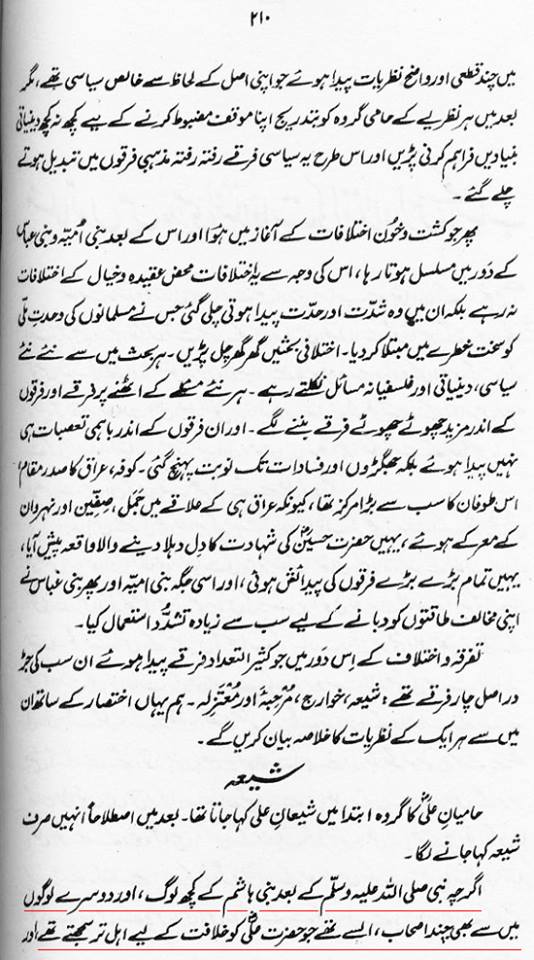 ۲۱۰
میں چند قطعی اور واضح نظریات پیدا ہوئے جو اپنی اصل کے لحاظ سے خالص سیاسی تھے، مگر
بعد میں ہر نظریے کے حامی گروہ کو بتدریج اپنا موقف مضبوط کرنے کے لیے کچھ نہ کچھ دینیاتی
بنیادیں فراہم کرنی پڑیں اور اس طرح یہ سیاسی فرقے رفتہ رفتہ مذہبی فرقوں میں تبدیل ہوتے
چلے گئے۔
پھر جو کشت و خون اختلافات کے آغاز میں ہوا اور اس کے بعد بنی امیّہ و بنی عباس
کے دَور میں مسلسل ہوتا رہا، اس کی وجہ سے یہ اختلافات محض عقیدہ و خیال کے اختلافات
نہ رہے بلکہ ان میں وہ شدّت اور حدّت پیدا ہوتی چلی گئی جس نے مسلمانوں کی وحدتِ ملّی
کو سخت خطرے میں مبتلا کر دیا۔ اختلافی بحثیں گھر گھر چل پڑیں۔ ہر بحث میں سے نئے نئے
سیاسی، دینیاتی اور فلسفیانہ مسائل نکلتے رہے۔ ہر نئے مسئلے کے اٹھنے پر فرقے اور فرقوں
کے اندر مزید چھوٹے چھوٹے فرقے بننے لگے۔ اور ان فرقوں کے اندر باہمی تعصبات ہی
نہیں پیدا ہوئے بلکہ جھگڑوں اور فسادات تک نوبت پہنچ گئی۔ کوفہ، عراق کا صدر مقام،
اس طوفان کا سب سے بڑا مرکز تھا، کیونکہ عراق ہی کے علاقے میں جَمَل، صِفّین اور نہروان
کے معرکے ہوئے، یہیں حضرت حسینؓ کی شہادت کا دل دہلا دینے والا واقعہ پیش آیا،
یہیں تمام بڑے بڑے فرقوں کی پیدائش ہوئی، اور اسی جگہ بنی امیّہ اور پھر بنی عباس نے
اپنی مخالف طاقتوں کو دبانے کے لیے سب سے زیادہ تشدُّد استعمال کیا۔
تفرقہ و اختلاف کے اِس دَور میں جو کثیر التعداد فرقے پیدا ہوئے ان سب کی جڑ
در اصل چار فرقے تھے: شیعہ، خوارج، مُرجِۂ اور مُعتزِلہ۔ ہم یہاں اختصار کے ساتھ ان
میں سے ہر ایک کے نظریات کا خلاصہ بیان کریں گے۔
شیعہ
حامیانِ علیؓ کا گروہ ابتدا میں شیعانِ علی کہا جاتا تھا۔ بعد میں اصطلاحاً انہیں صرف
شیعہ کہا جانے لگا۔
اگرچہ نبی صلی اللہ علیہ وسلّم کے بعد بنی ہاشم کے کچھ لوگ، اور دوسرے لوگوں
میں سے بھی چند اصحاب، ایسے تھے جو حضرت علیؓ کو خلافت کے لیے اہل تر سمجھتے تھے اور